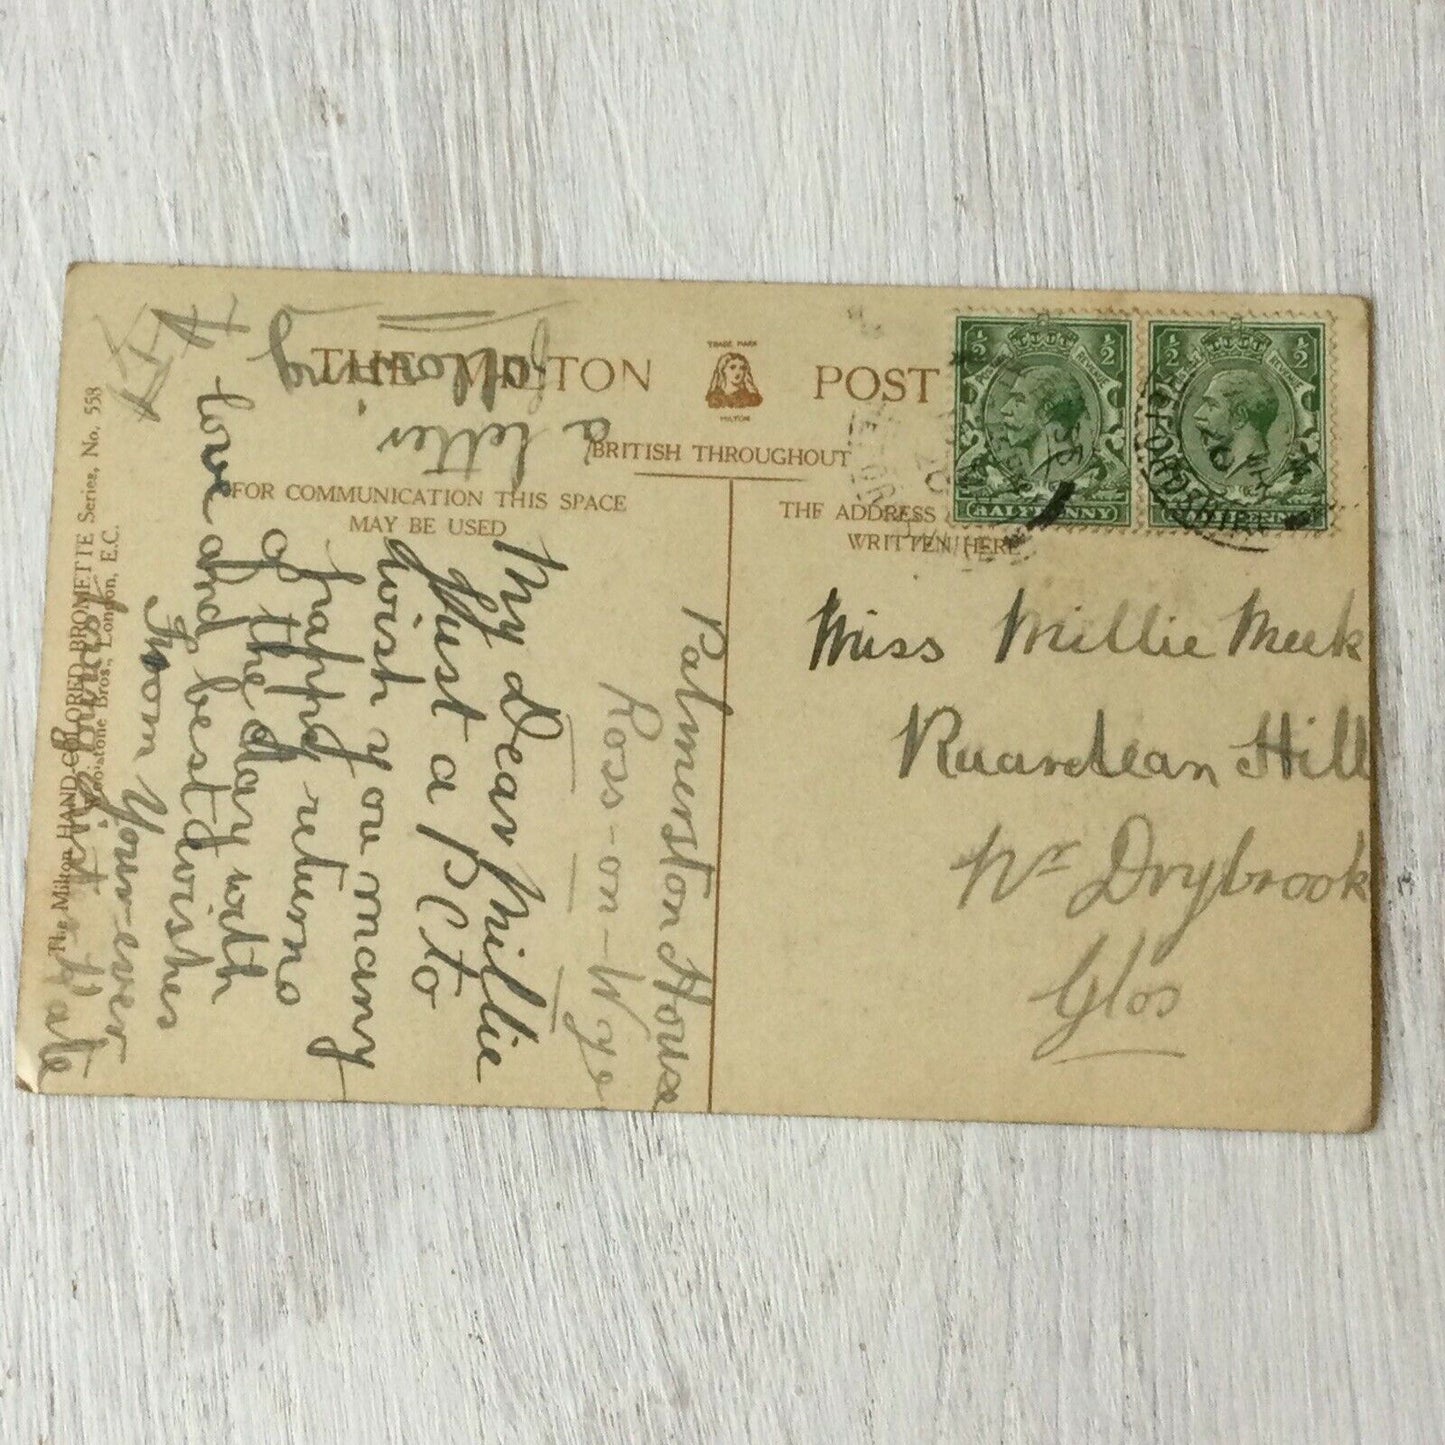 THE MILTON POST
TRADE MARK
MILTON
BRITISH THROUGHOUT
FOR COMMUNICATION THIS SPACE
MAY BE USED
THE ADDRESS
WRITTEN HERE
The Milton HAND-COLORED BROMETTE Series, No. 553
Woolstone Bros., London, E.C.
½ ½
POSTAGE REVENUE
HALFPENNY
½ ½
Palmerston House
Ross-on-Wye
My Dear Millie
Just a PC to
wish you many
happy returns
of the day with
love and best wishes
From Your ever
Kate
a letter
following
Miss Millie Meek
Ruardean Hill
Nr Drybrook
Glos